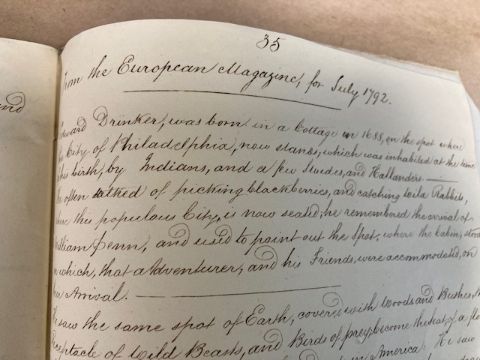 35
from the European Magazine, for July 1792.
Edward Drinker, was born in a Cottage in 1688, on the spot where
City of Philadelphia, now stands, which was inhabited at the time
his birth, by Indians, and a few Swedes, and Hollanders —
often talked of picking blackberries, and catching wild Rabbits,
where this populous City, is now seated, he remembered the arrival of
William Penn, and used to point out the Spot, where the Cabin, stood
in which, that adventurer, and his Friends, were accommodated, on
their Arrival. —
He saw the same spot of Earth, covered with Woods and Bushes, the
receptacle of Wild Beasts, and Birds of prey, become the seat, of a
in America. He saw